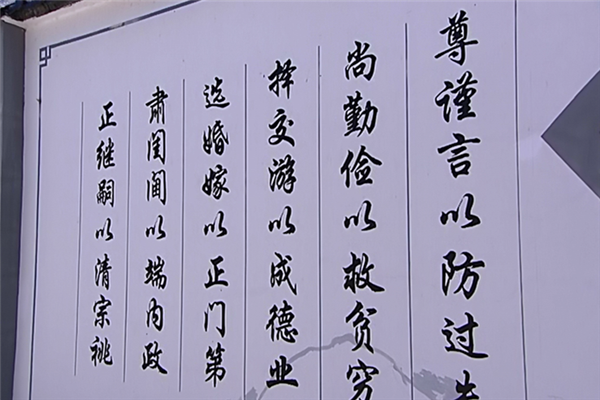 尊谨言以防过
尚勤俭以救贫穷
择交游以成德业
选婚嫁以正门第
肃闺阃以端内政
正继嗣以清宗祧